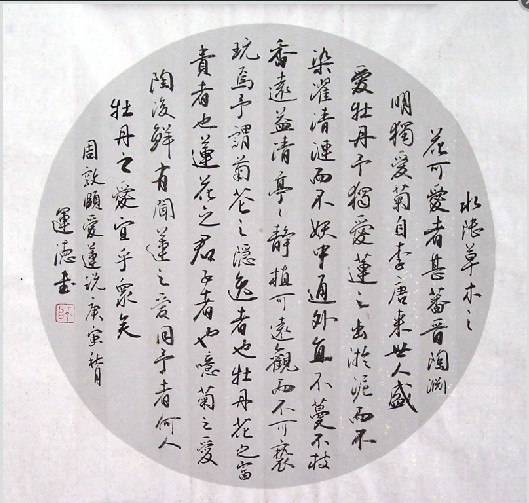 水陸草木之
花可愛者甚蕃晋陶渊
明獨爱菊自李唐来世人盛
愛牡丹予獨愛蓮之出淤泥而不
染濯清漣而不妖中通外直不蔓不枝
香遠益清亭〻静植可遠觀而不可褻
玩焉予謂菊花之隱逸者也牡丹花之富
貴者也蓮花之君子者也噫菊之爱
陶後鮮有聞蓮之爱同予者何人
牡丹之愛宜乎眾矣
周敦颐爱蓮说庚寅秋月
運德書